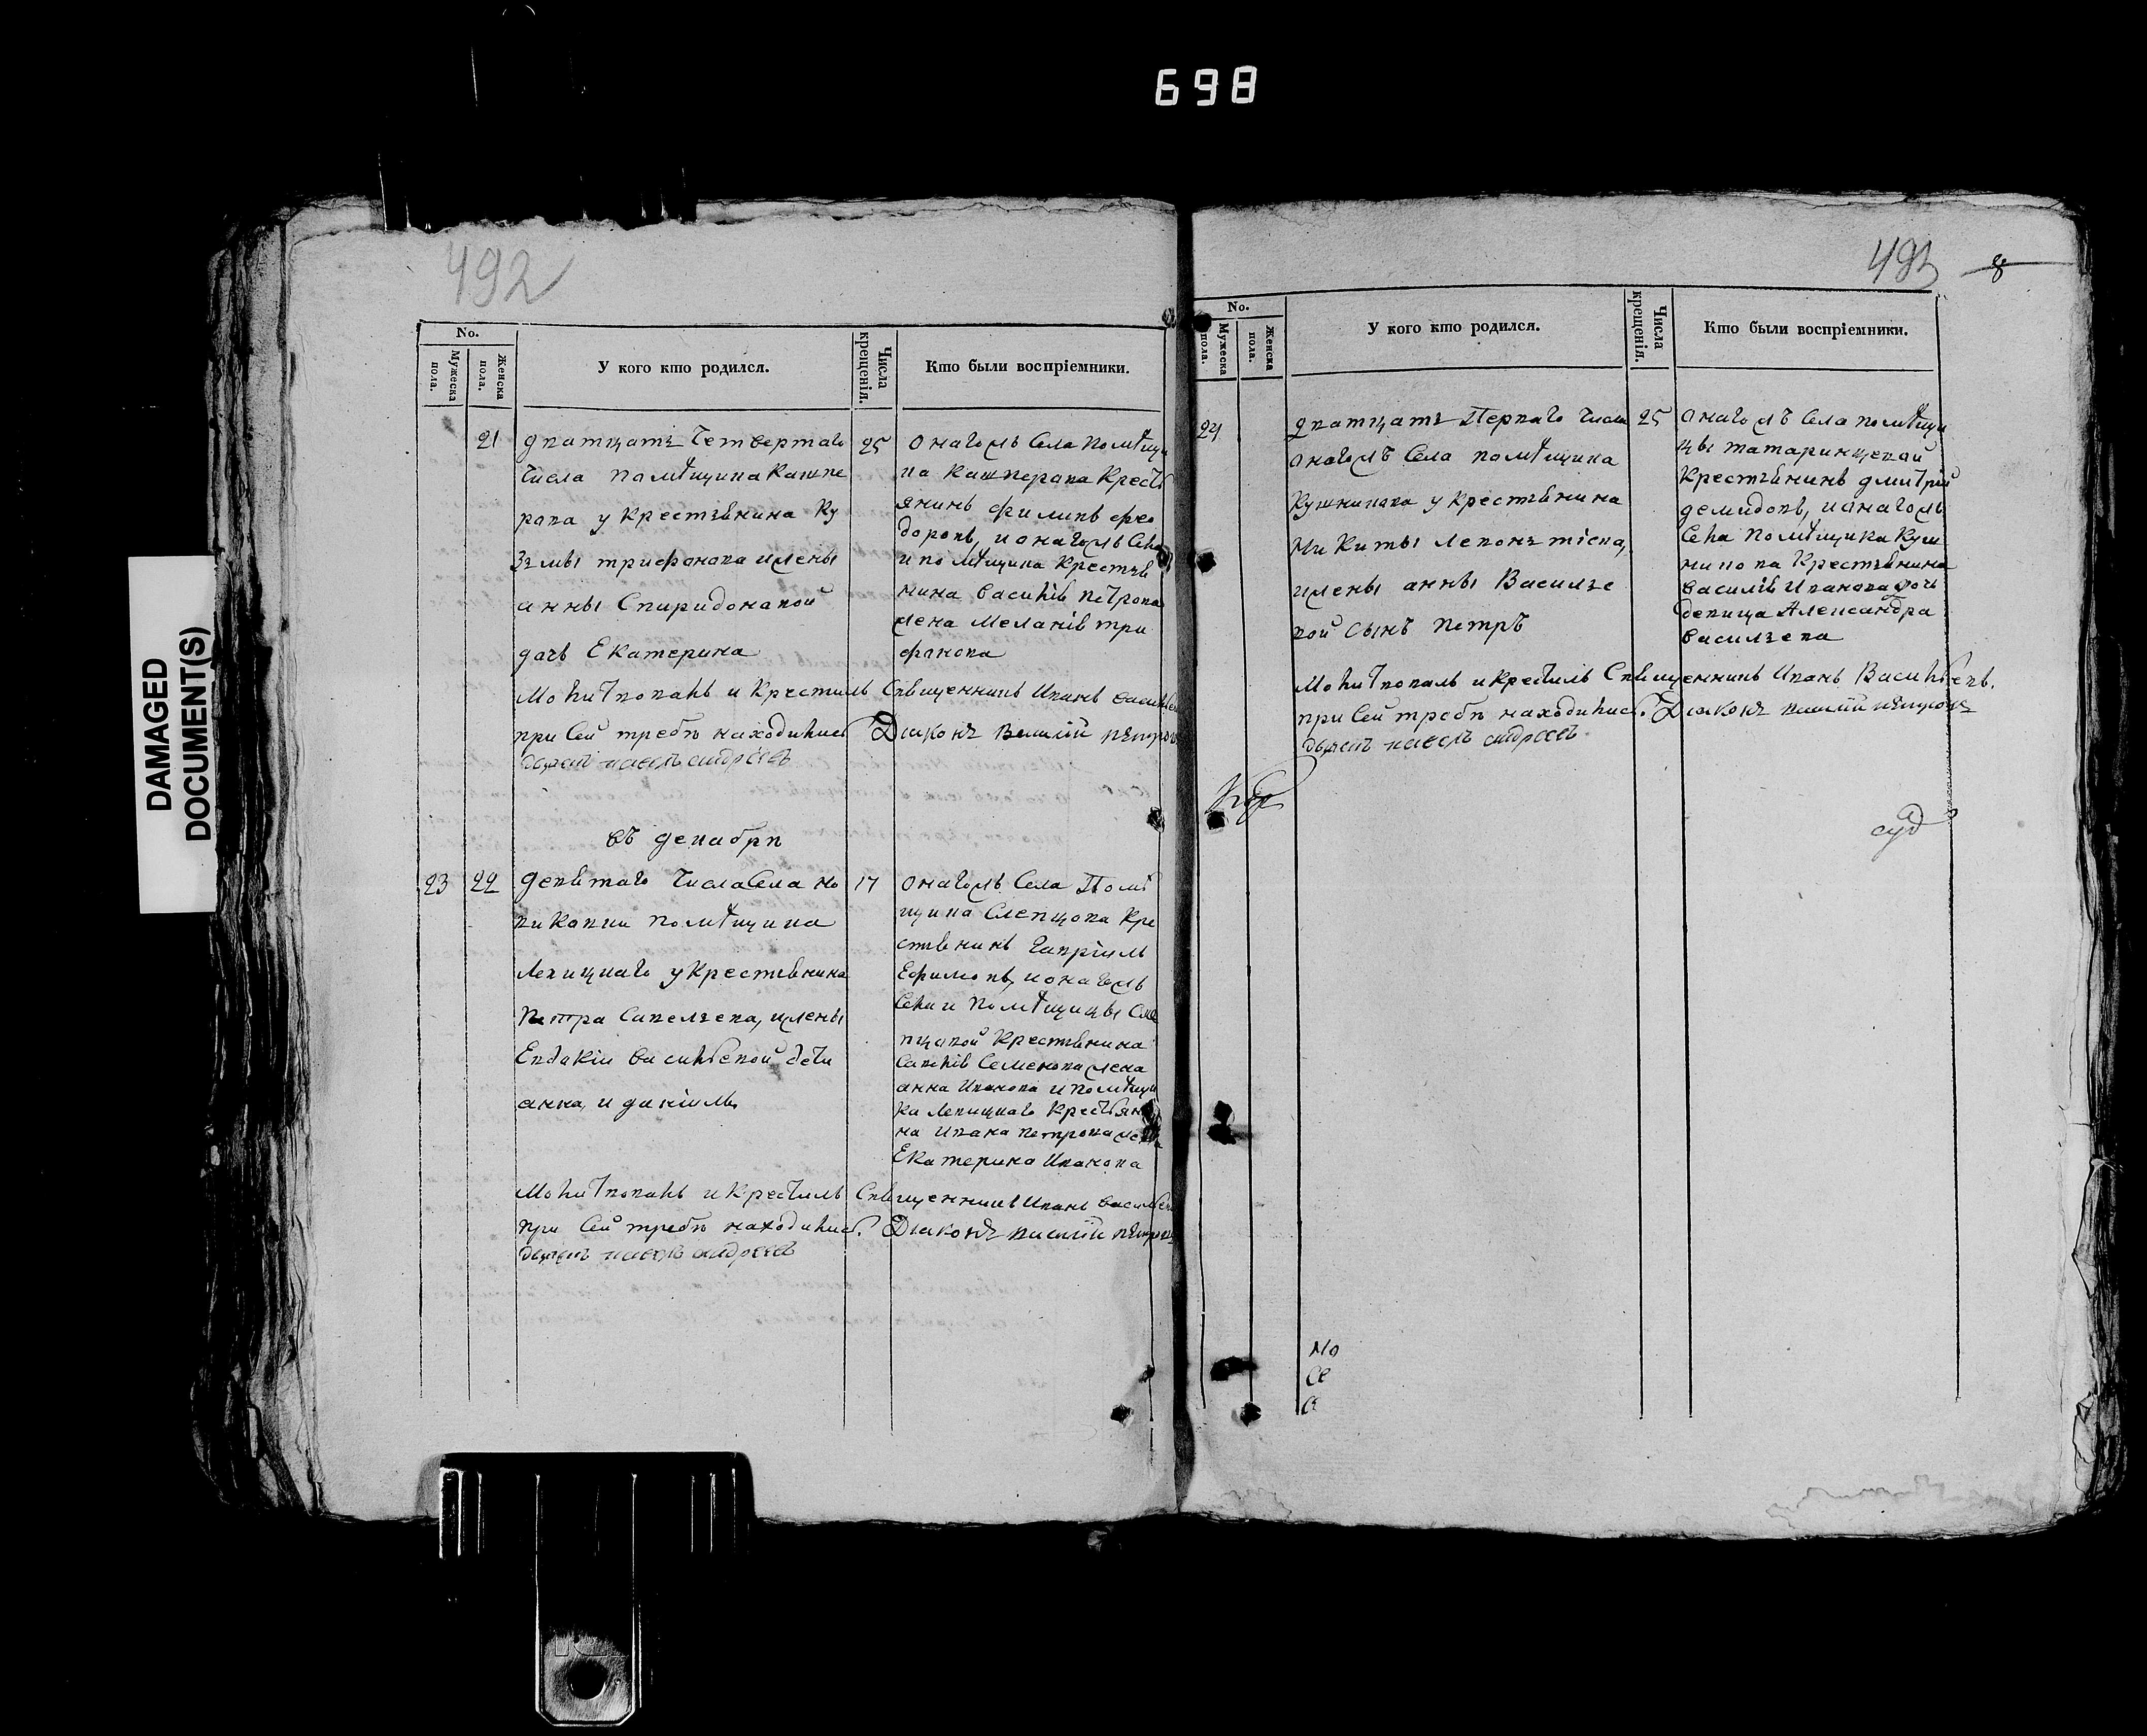 698
DAMAGED
DOCUMENT(S)
492
No.
Мужеска пола.
Женска пола.
У кого кто родился.
Числа крещенія.
Кто были воспріемники.
21
дватцать четвертаго
числа помѣщика Кашпе
рова у крестьянина Ку
зьмы трифонова и жены
анны Спиридоновой
дочь Екатерина
25
онагожъ Села помѣщи
ка Кашперова Крестъ
янинъ филипъ фео
доровъ, и онагожъ Села
и помѣщика Крестья
нина василія Петрова
жена Меланія три
фонова
Молитвовалъ и Крестилъ Священникъ Иванъ Васильевъ
при сей требѣ находились Дїаконъ Василій Петровъ
дьячекъ павелъ андреевъ
въ декабрѣ
23
22
девятаго числа Села но
виковки помѣщика
Левицкаго у Крестьянина
Петра Савельева, и жены
Евдокіи васильевой дети
анна, и даніилъ
17
онагожъ Села Помѣ
щика Слепцова Кре
стьянинъ Гавріилъ
Ефимовъ, и онагожъ
Села и помѣщицы Сле
пцовой Крестьянина
Савелія Семенова жена
анна Иванова и помѣщи
ка Левицкаго Крестьяни
на Ивана Петрова жена
Екатерина Иванова
Молитвовалъ и Крестилъ Священникъ Иванъ Васильевъ
при Сей требѣ находились. Дїаконъ Василій Петровъ
дьячекъ павелъ андреевъ
493
8
No.
Мужеска пола.
Женска пола.
У кого кто родился.
Числа крещенія.
Кто были воспріемники.
24
дватцать Перваго числа
онагожъ Села помѣщика
Кушникова у крестьянина
Микиты Леонтіева,
и жены анны Василье
вой сынъ Петръ
25
онагожъ Села помѣщи
цы татаринцевой
Крестьянинъ дмитрій
демидовъ, и онагожъ
Села помѣщика Куш
никова Крестьянина
василія Иванова дочь
девица Александра
васильева
Молитвовалъ и крестилъ Священникъ Иванъ Васильевъ.
при Сей требѣ находились. Дїаконъ Василій Петровъ
дьячекъ павелъ андреевъ
суд
Мо
Се